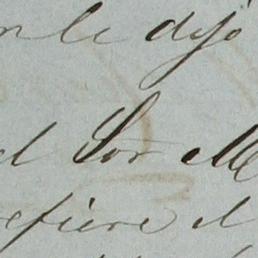 n le dijo
el Sor M
efiere el